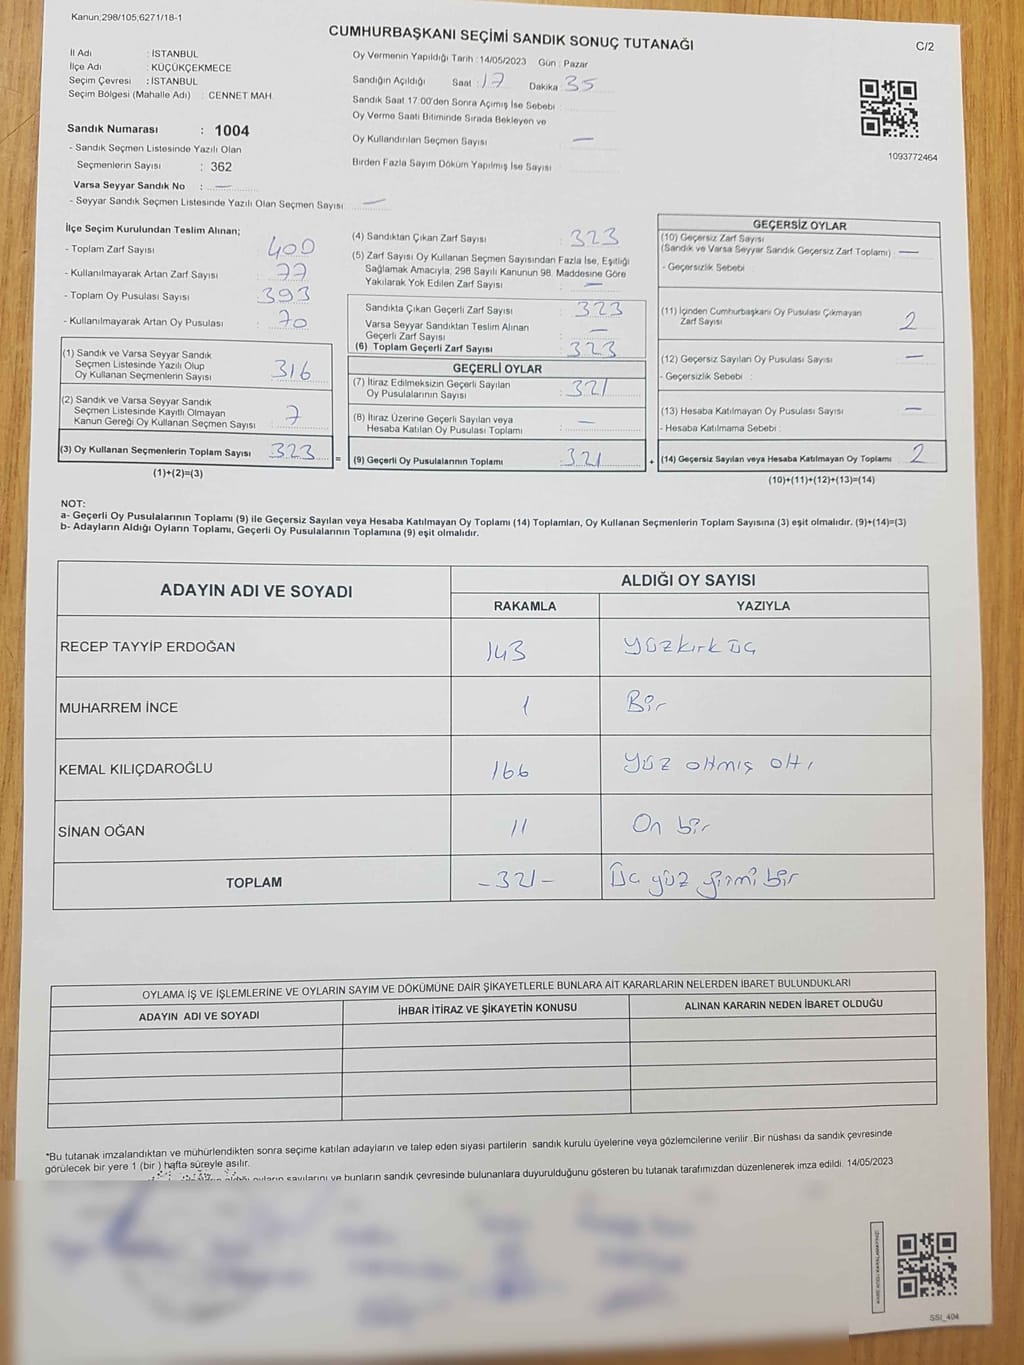 Kanun;298/105,6271/18-1
CUMHURBAŞKANI SEÇİMİ SANDIK SONUÇ TUTANAĞI
C/2
İl Adı : İSTANBUL
İlçe Adı : KÜÇÜKÇEKMECE
Seçim Çevresi : İSTANBUL
Seçim Bölgesi (Mahalle Adı) : CENNET MAH.
Sandık Numarası : 1004
- Sandık Seçmen Listesinde Yazılı Olan
Seçmenlerin Sayısı : 362
Varsa Seyyar Sandık No : —
- Seyyar Sandık Seçmen Listesinde Yazılı Olan Seçmen Sayısı: —
Oy Vermenin Yapıldığı Tarih : 14/05/2023 Gün : Pazar
Sandığın Açıldığı Saat : 17 Dakika : 35
Sandık Saat 17:00'den Sonra Açımış İse Sebebi :
Oy Verme Saati Bitiminde Sırada Bekleyen ve
Oy Kullandırılan Seçmen Sayısı : —
Birden Fazla Sayım Döküm Yapılmış İse Sayısı :
1093772464
İlçe Seçim Kurulundan Teslim Alınan;
- Toplam Zarf Sayısı : 400
- Kullanılmayarak Artan Zarf Sayısı : 77
- Toplam Oy Pusulası Sayısı : 393
- Kullanılmayarak Artan Oy Pusulası : 70
(1) Sandık ve Varsa Seyyar Sandık
Seçmen Listesinde Yazılı Olup
Oy Kullanan Seçmenlerin Sayısı : 316
(2) Sandık ve Varsa Seyyar Sandık
Seçmen Listesinde Kayıtlı Olmayan
Kanun Gereği Oy Kullanan Seçmen Sayısı : 7
(3) Oy Kullanan Seçmenlerin Toplam Sayısı : 323 =
(1)+(2)=(3)
(4) Sandıktan Çıkan Zarf Sayısı : 323
(5) Zarf Sayısı Oy Kullanan Seçmen Sayısından Fazla İse, Eşitliği
Sağlamak Amacıyla, 298 Sayılı Kanunun 98. Maddesine Göre
Yakılarak Yok Edilen Zarf Sayısı : —
Sandıkta Çıkan Geçerli Zarf Sayısı : 323
Varsa Seyyar Sandıktan Teslim Alınan
Geçerli Zarf Sayısı : —
(6) Toplam Geçerli Zarf Sayısı : 323
GEÇERLİ OYLAR
(7) İtiraz Edilmeksizin Geçerli Sayılan
Oy Pusulalarının Sayısı : 321
(8) İtiraz Üzerine Geçerli Sayılan veya
Hesaba Katılan Oy Pusulası Toplamı : —
(9) Geçerli Oy Pusulalarının Toplamı : 321 +
GEÇERSİZ OYLAR
(10) Geçersiz Zarf Sayısı
(Sandık ve Varsa Seyyar Sandık Geçersiz Zarf Toplamı) : —
- Geçersizlik Sebebi :
(11) İçinden Cumhurbaşkanı Oy Pusulası Çıkmayan
Zarf Sayısı : 2
(12) Geçersiz Sayılan Oy Pusulası Sayısı : —
- Geçersizlik Sebebi :
(13) Hesaba Katılmayan Oy Pusulası Sayısı : —
- Hesaba Katılmama Sebebi :
(14) Geçersiz Sayılan veya Hesaba Katılmayan Oy Toplamı : 2
(10)+(11)+(12)+(13)=(14)
NOT:
a- Geçerli Oy Pusulalarının Toplamı (9) ile Geçersiz Sayılan veya Hesaba Katılmayan Oy Toplamı (14) Toplamları, Oy Kullanan Seçmenlerin Toplam Sayısına (3) eşit olmalıdır. (9)+(14)=(3)
b- Adayların Aldığı Oyların Toplamı, Geçerli Oy Pusulalarının Toplamına (9) eşit olmalıdır.
ADAYIN ADI VE SOYADI ALDIĞI OY SAYISI
RAKAMLA YAZIYLA
RECEP TAYYİP ERDOĞAN 143 Yüzkırk üç
MUHARREM İNCE 1 Bir
KEMAL KILIÇDAROĞLU 166 Yüz altmış altı
SİNAN OĞAN 11 On bir
TOPLAM -321- Üç yüz yirmi bir
OYLAMA İŞ VE İŞLEMLERİNE VE OYLARIN SAYIM VE DÖKÜMÜNE DAİR ŞİKAYETLERLE BUNLARA AİT KARARLARIN NELERDEN İBARET BULUNDUKLARI
ADAYIN ADI VE SOYADI İHBAR İTİRAZ VE ŞİKAYETİN KONUSU ALINAN KARARIN NEDEN İBARET OLDUĞU
*Bu tutanak imzalandıktan ve mühürlendikten sonra seçime katılan adayların ve talep eden siyasi partilerin sandık kurulu üyelerine veya gözlemcilerine verilir. Bir nüshası da sandık çevresinde
görülecek bir yere 1 (bir ) hafta süreyle asılır.
oyların sayılarını ve bunların sandık çevresinde bulunanlara duyurulduğunu gösteren bu tutanak tarafımızdan düzenlenerek imza edildi. 14/05/2023
SSI_404